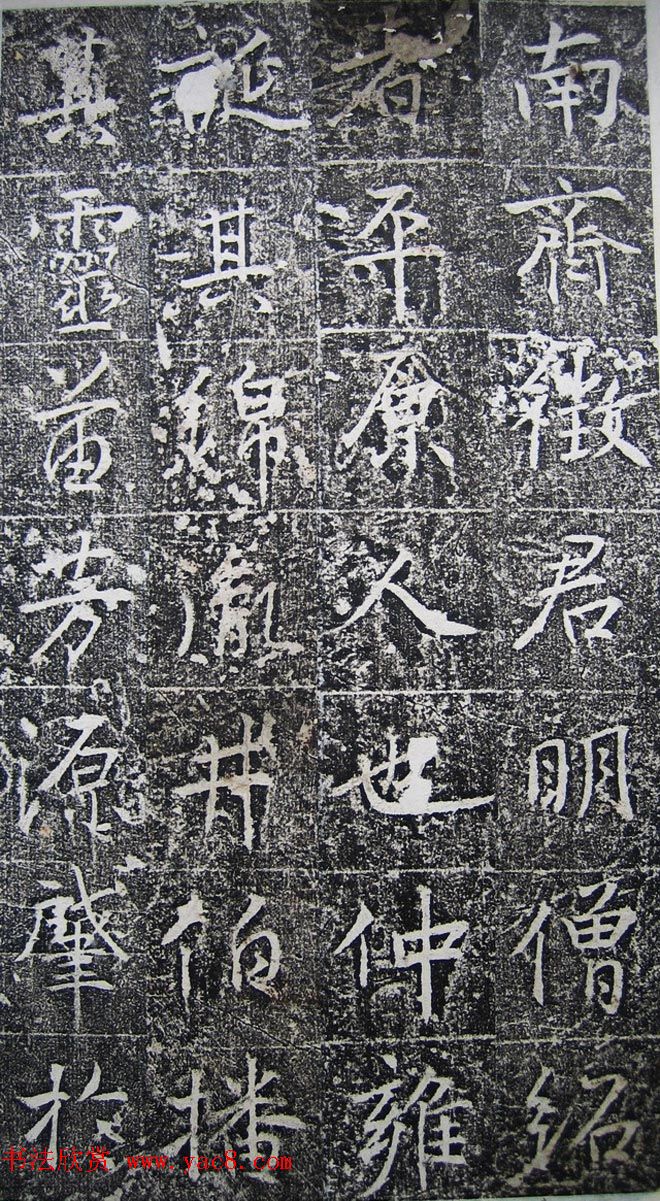 南齊徵君明僧紹
者平原人也仲雍
誕其綿胤井伯播
其靈苗芳源肇於
书法欣赏 www.yac8.com